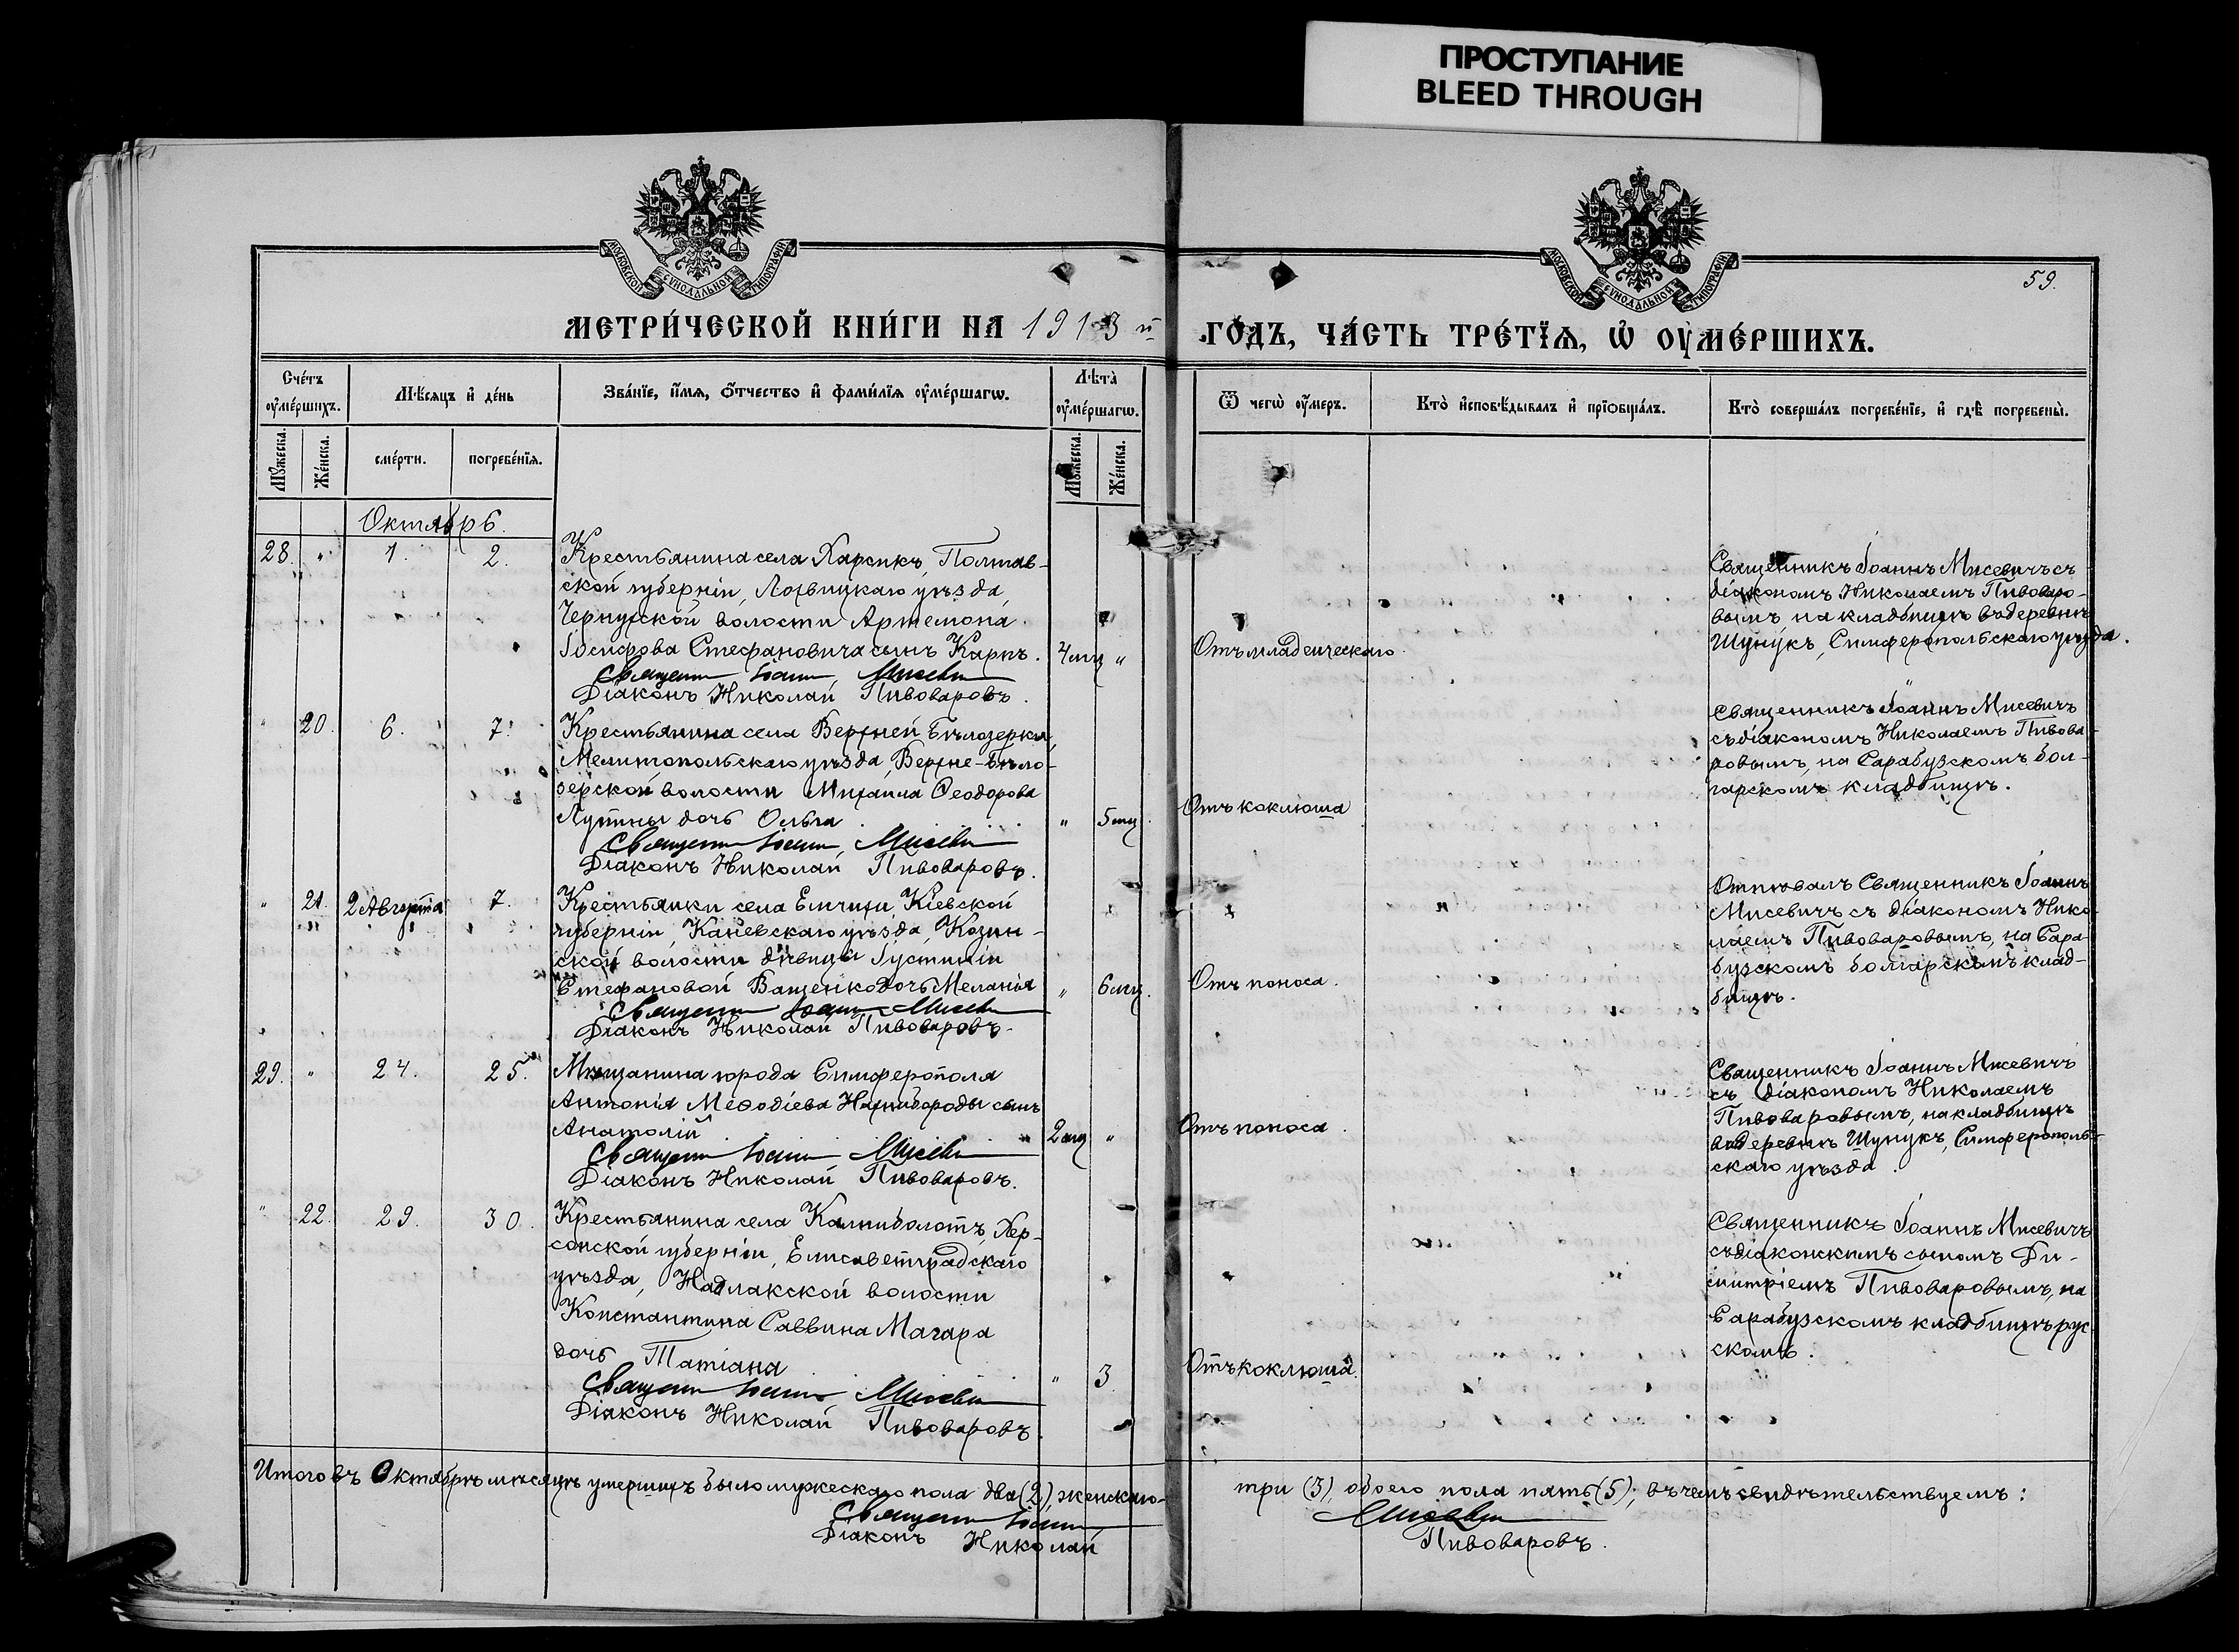 ПРОСТУПАНИЕ
BLEED THROUGH
МОСКОВСКОЙ СѴНОДАЛЬНОЙ ТИПОГРАФІИ
МОСКОВСКОЙ СѴНОДАЛЬНОЙ ТИПОГРАФІИ
59.
МЕТРИ́ЧЕСКОЙ КНИ́ГИ НА 1913 й
ГО́ДЪ, ЧА́СТЬ ТРЕ́ТЇѦ, Ѡ҆ ОУ҆МЕ́РШИХЪ.
Сче́тъ оу҆ме́ршихъ.
Мѣ́сѧцъ и҆ де́нь
Зва́нїе, и҆́мѧ, ѻ҆́тчество и҆ фами́лїѧ оу҆ме́ршагѡ.
Лѣ́та оу҆ме́ршагѡ.
Ѿ чегѡ̀ оу҆́меръ.
Кто̀ и҆сповѣ́дывалъ и҆ прїѻбща́лъ.
Кто̀ соверша́лъ погребе́нїе, и҆ гдѣ̀ погребены̀.
Мꙋ́жеска.
Же́нска.
сме́рти.
погребе́нїѧ.
Мꙋ́жеска.
Же́нска.
Октябрь.
28. " 1. 2.
Крестьянина села Харсикъ, Полтав-
ской губерніи, Лохвицкаго уѣзда,
Чернухской волости Артемона
Іосифова Стефановича сынъ Карпъ. 4 мц "
Священникъ Іоаннъ Мисевичъ
Діаконъ Николай Пивоваровъ.
Отъ младенческаго.
Священникъ Іоаннъ Мисевичъ съ
діакономъ Николаемъ Пивоваро-
вымъ, на кладбищѣ въ деревнѣ
Шунукъ, Симферопольскаго уѣзда.
" 20. 6. 7.
Крестьянина села Верхней Бѣлозерки,
Мелитопольскаго уѣзда, Верхне-Бѣло-
зерской волости Михаила Ѳеодорова
Лупины дочь Ольга " 5 мц.
Священникъ Іоаннъ Мисевичъ
Діаконъ Николай Пивоваровъ.
Отъ коклюша
Священникъ Іоаннъ Мисевичъ
съ діакономъ Николаемъ Пивова-
ровымъ, на Сарабузскомъ бол-
гарскомъ кладбищѣ.
" 21. 2 Августа 7.
Крестьянки села Емчихи, Кіевской
губерніи, Каневскаго уѣзда, Козин-
ской волости дѣвицы Іустиніи
Стефановой Ващенко дочь Меланія " 6 мц.
Священникъ Іоаннъ Мисевичъ
Діаконъ Николай Пивоваровъ.
Отъ поноса.
Отпѣвалъ Священникъ Іоаннъ
Мисевичъ съ діакономъ Нико-
лаемъ Пивоваровымъ, на Сара-
бузскомъ болгарскомъ клад-
бищѣ.
29. " 24. 25.
Мѣщанина города Симферополя
Антонія Меѳодіева Нахнибороды сынъ
Анатолій 2 мц "
Священникъ Іоаннъ Мисевичъ
Діаконъ Николай Пивоваровъ.
Отъ поноса.
Священникъ Іоаннъ Мисевичъ
съ діакономъ Николаемъ
Пивоваровымъ, на кладбищѣ
въ деревнѣ Шунукъ, Симферополь-
скаго уѣзда.
" 22. 29. 30.
Крестьянина села Калниболотъ, Хер-
сонской губерніи, Елисаветградскаго
уѣзда, Надлакской волости
Константина Саввина Магара
дочь Татіана " 3.
Священникъ Іоаннъ Мисевичъ
Діаконъ Николай Пивоваровъ.
Отъ коклюша.
Священникъ Іоаннъ Мисевичъ
съ діаконскимъ сыномъ Ди-
митріемъ Пивоваровымъ, на
Сарабузскомъ кладбищѣ рус-
скомъ.
Итого въ Октябрѣ мѣсяцѣ умершихъ было мужескаго пола два (2), женскаго-
три (3), обоего пола пять (5); въ чемъ свидѣтельствуемъ:
Священникъ Іоаннъ
Мисевичъ
Діаконъ Николай
Пивоваровъ.